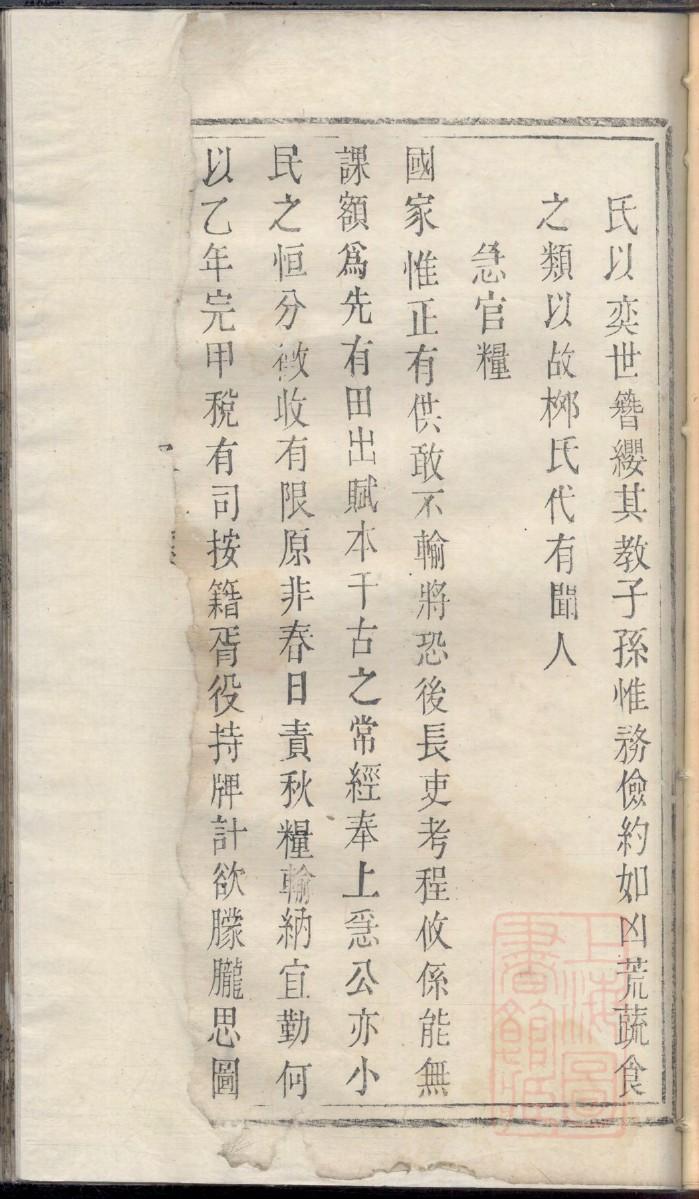 氏以奕世簪纓其教子孫惟務儉約如凶荒蔬食
之類以故栁氏代有聞人
急官糧
國家惟正有供敢不輸將恐後長吏考程攸係能無
課額爲先有田出賦本千古之常經奉上急公亦小
民之恒分徴收有限原非春日責秋糧輸納宜勤何
以乙年完甲稅有司按籍胥役持牌計欲朦朧思圖
上海圖書館藏